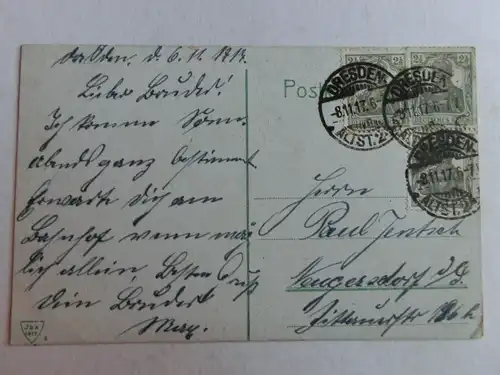 Dresden, d. 6.11.1917.
Lieber Bruder!
Ich komme Sonn-
abend ganz bestimmt
Erwarte Dich am
Bahnhof wenn mög-
lich allein. Besten Gruß
Dein Bruder
Max.
Post
DRESDEN
-8.11.17.6-
ALTST. 2
DRESDEN
11.17.6-7
ALTST.
DRESDEN
-8.11.17.6-7
ALTST.
2½
2½
2½
Herrn
Paul Jentsch
Neugersdorf i/S.
Zittauerstr.